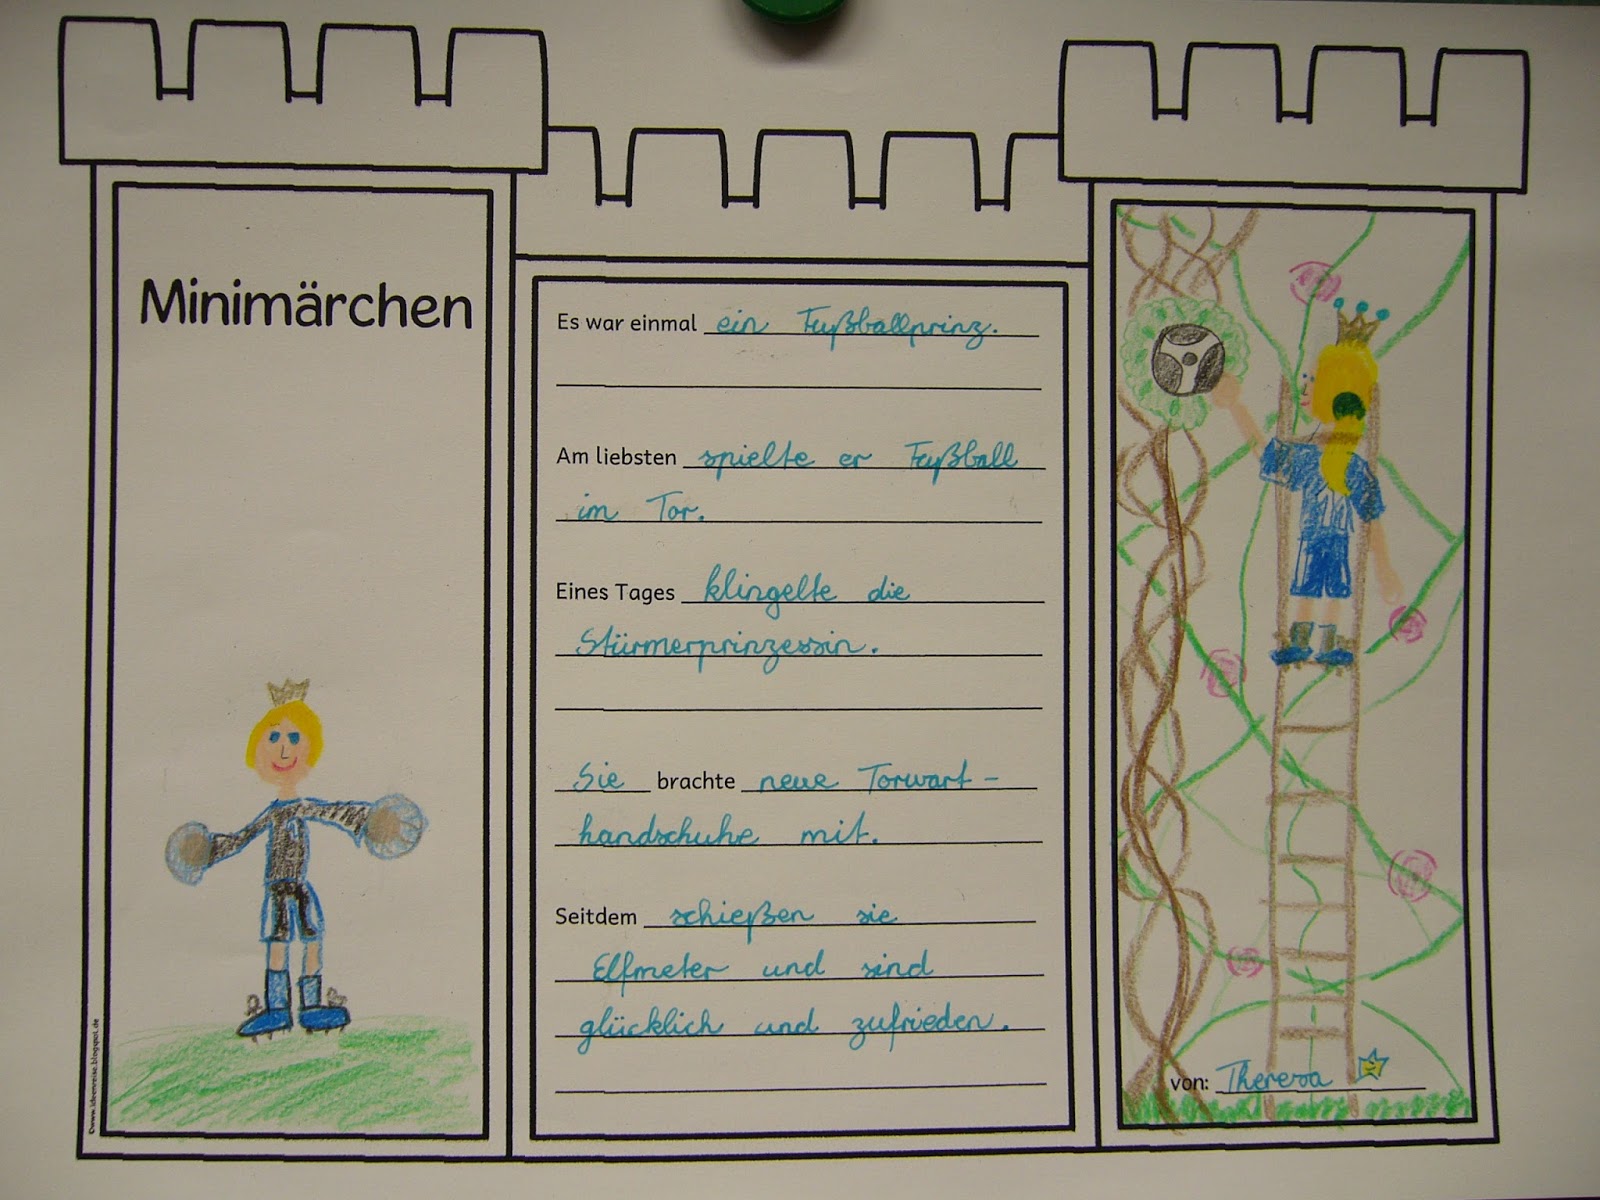 Minimärchen
Es war einmal ein Fußballprinz.
Am liebsten spielte er Fußball
im Tor.
Eines Tages klingelte die
Stürmerprinzessin.
Sie brachte neue Torwart-
handschuhe mit.
Seitdem schießen sie
Elfmeter und sind
glücklich und zufrieden.
von: Theresa
©www.ideenreise.blogspot.de